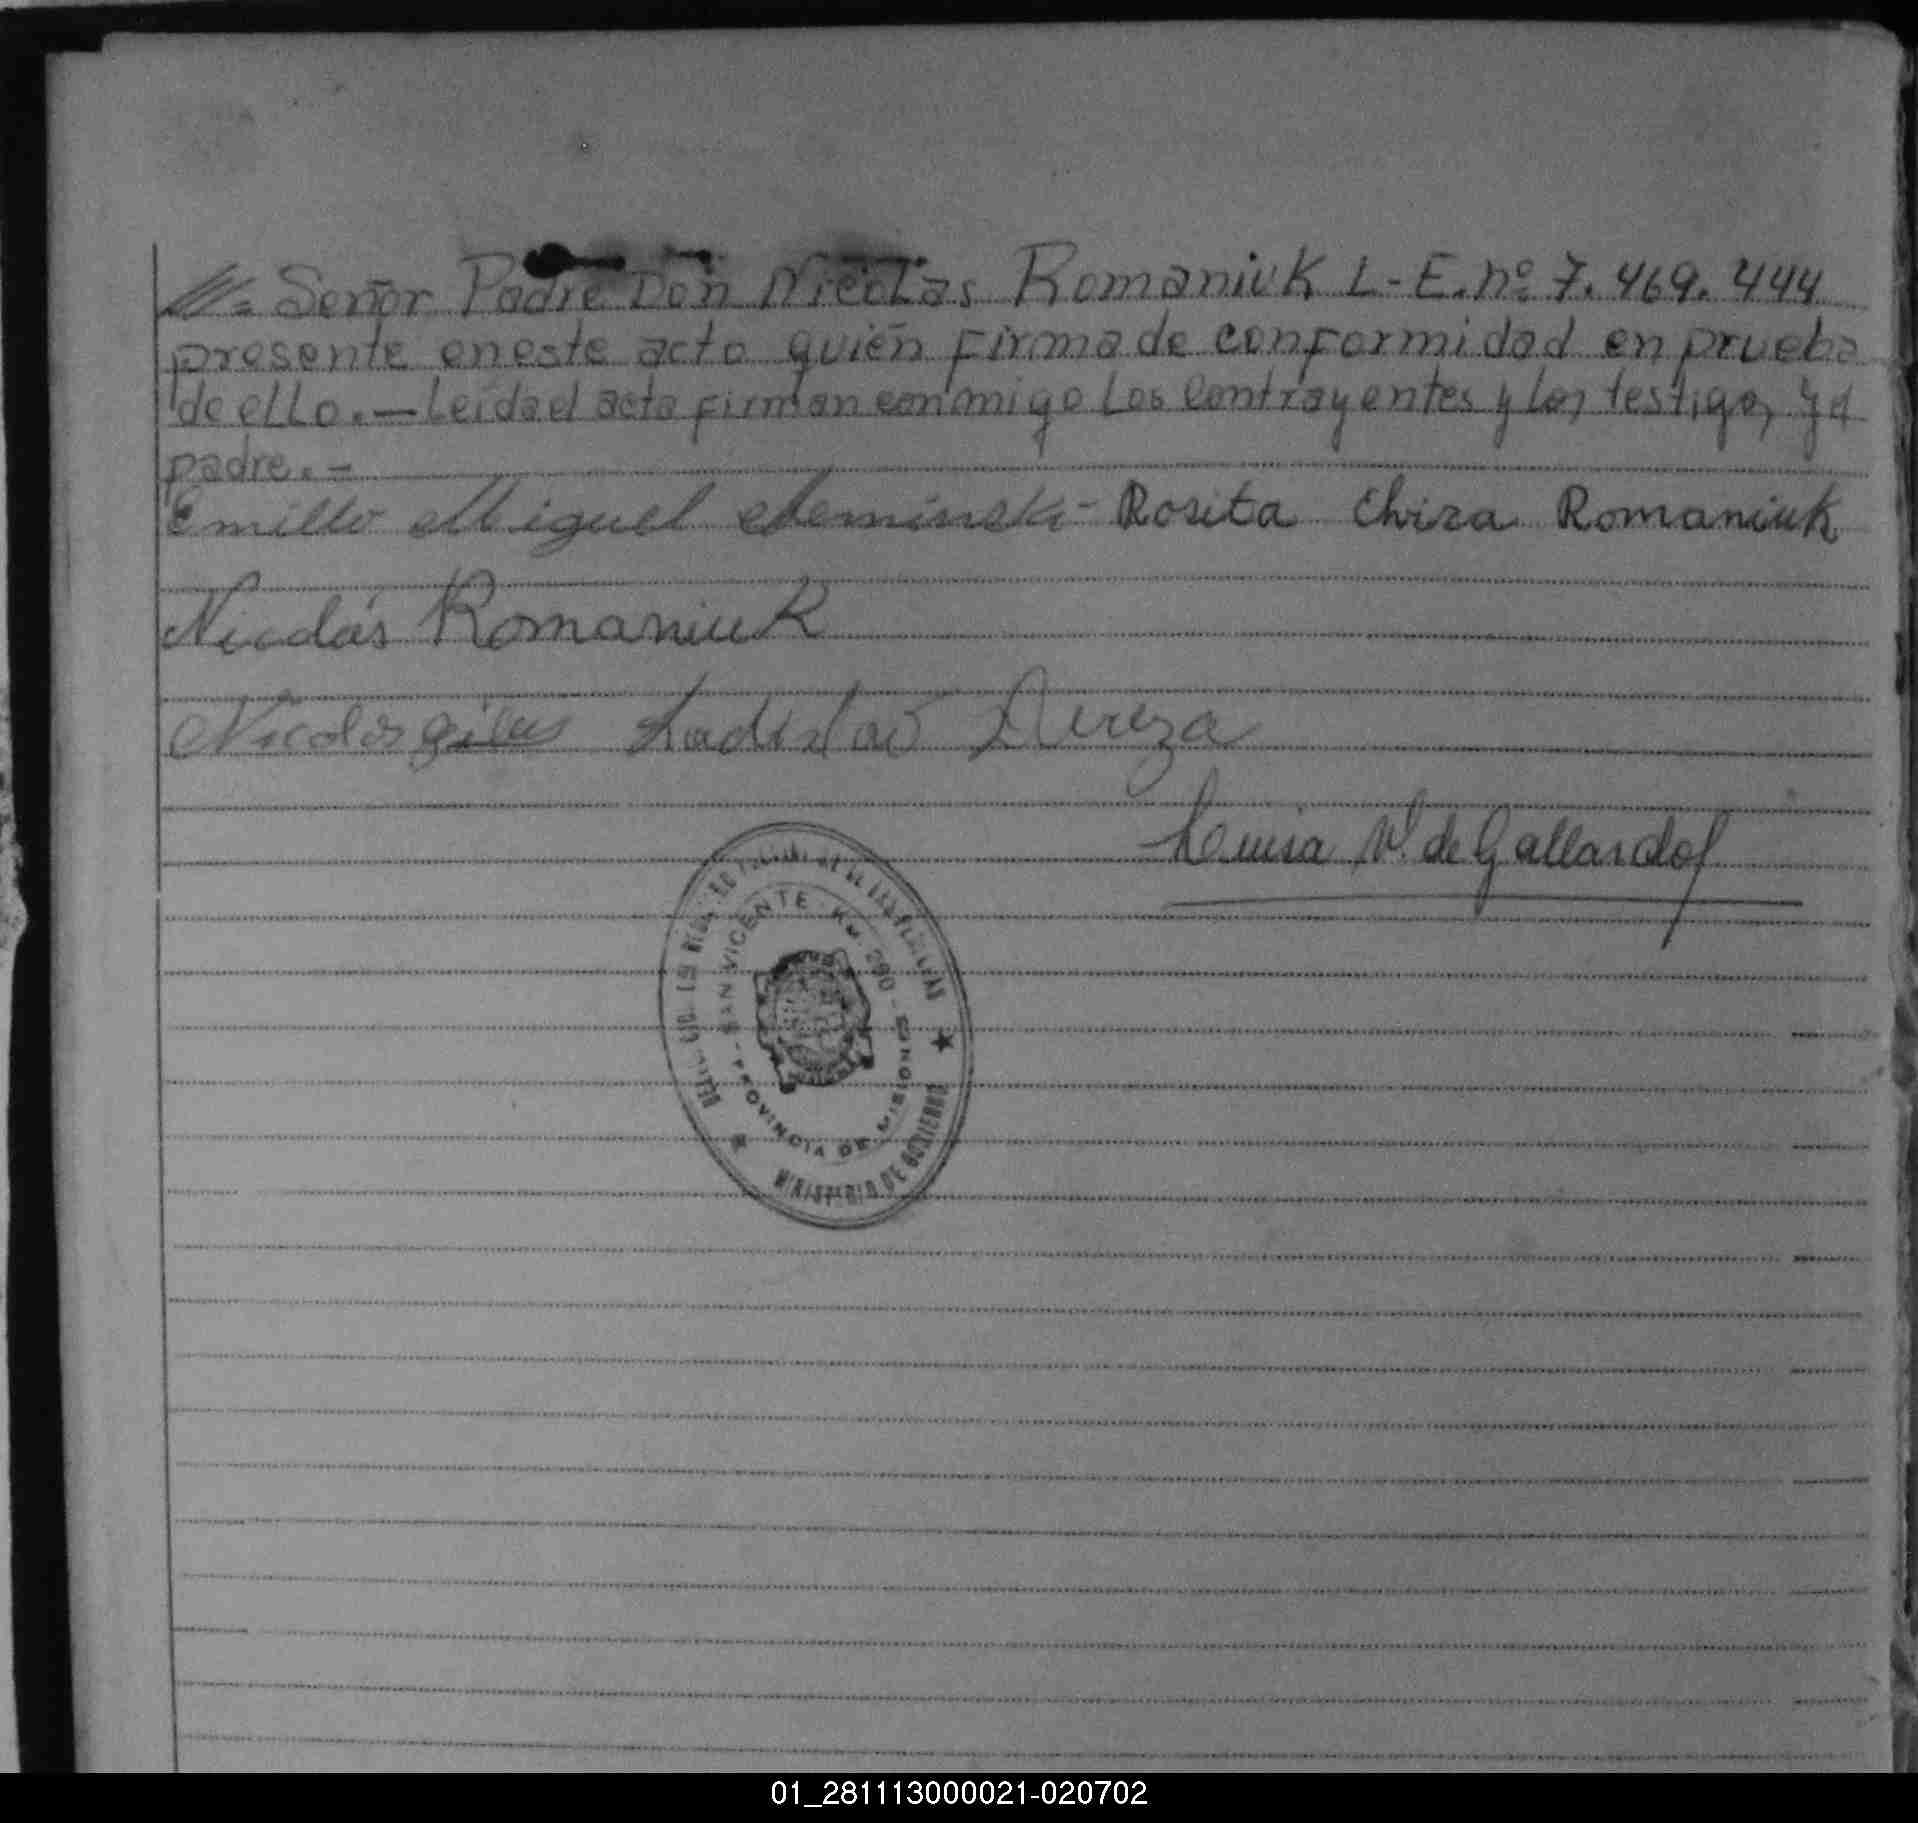 ///= Señor Padre Don Nicolás Romaniuk L-E.nº 7.469.444
presente en este acto quién firma de conformidad en prueba
de ello.— Leída el acta firman conmigo Los Contrayentes y los testigos y el
padre.-
Emilio Miguel - Rosita Elvira Romaniuk
Nicolás Romaniuk
Nicolas Ladislao
Luisa V. de Gallardo
REGISTRO PROVINCIAL DE LAS PERSONAS
SAN VICENTE - KM. 290 - PROVINCIA DE MISIONES
MINISTERIO DE GOBIERNO
01_281113000021-020702